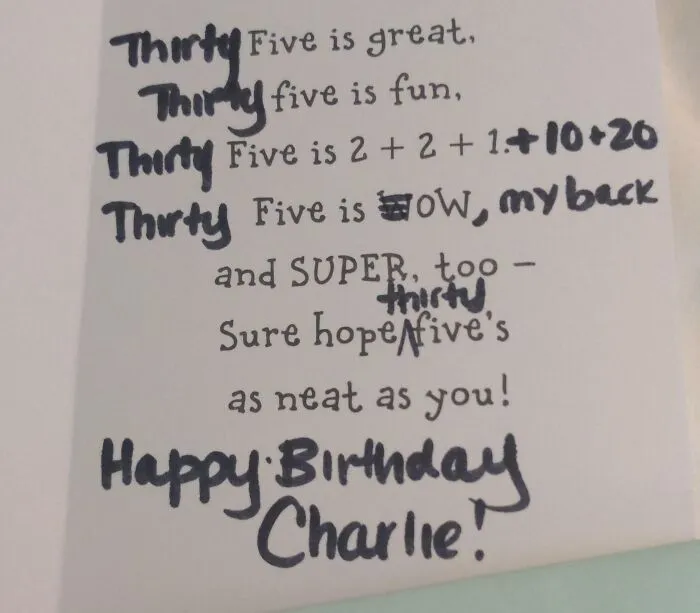 Thirty Five is great,
Thirty five is fun,
Thirty Five is 2 + 2 + 1.+10+20
Thirty Five is OW, my back
and SUPER, too –
Sure hope thirty five's
as neat as you!
Happy Birthday
Charlie!